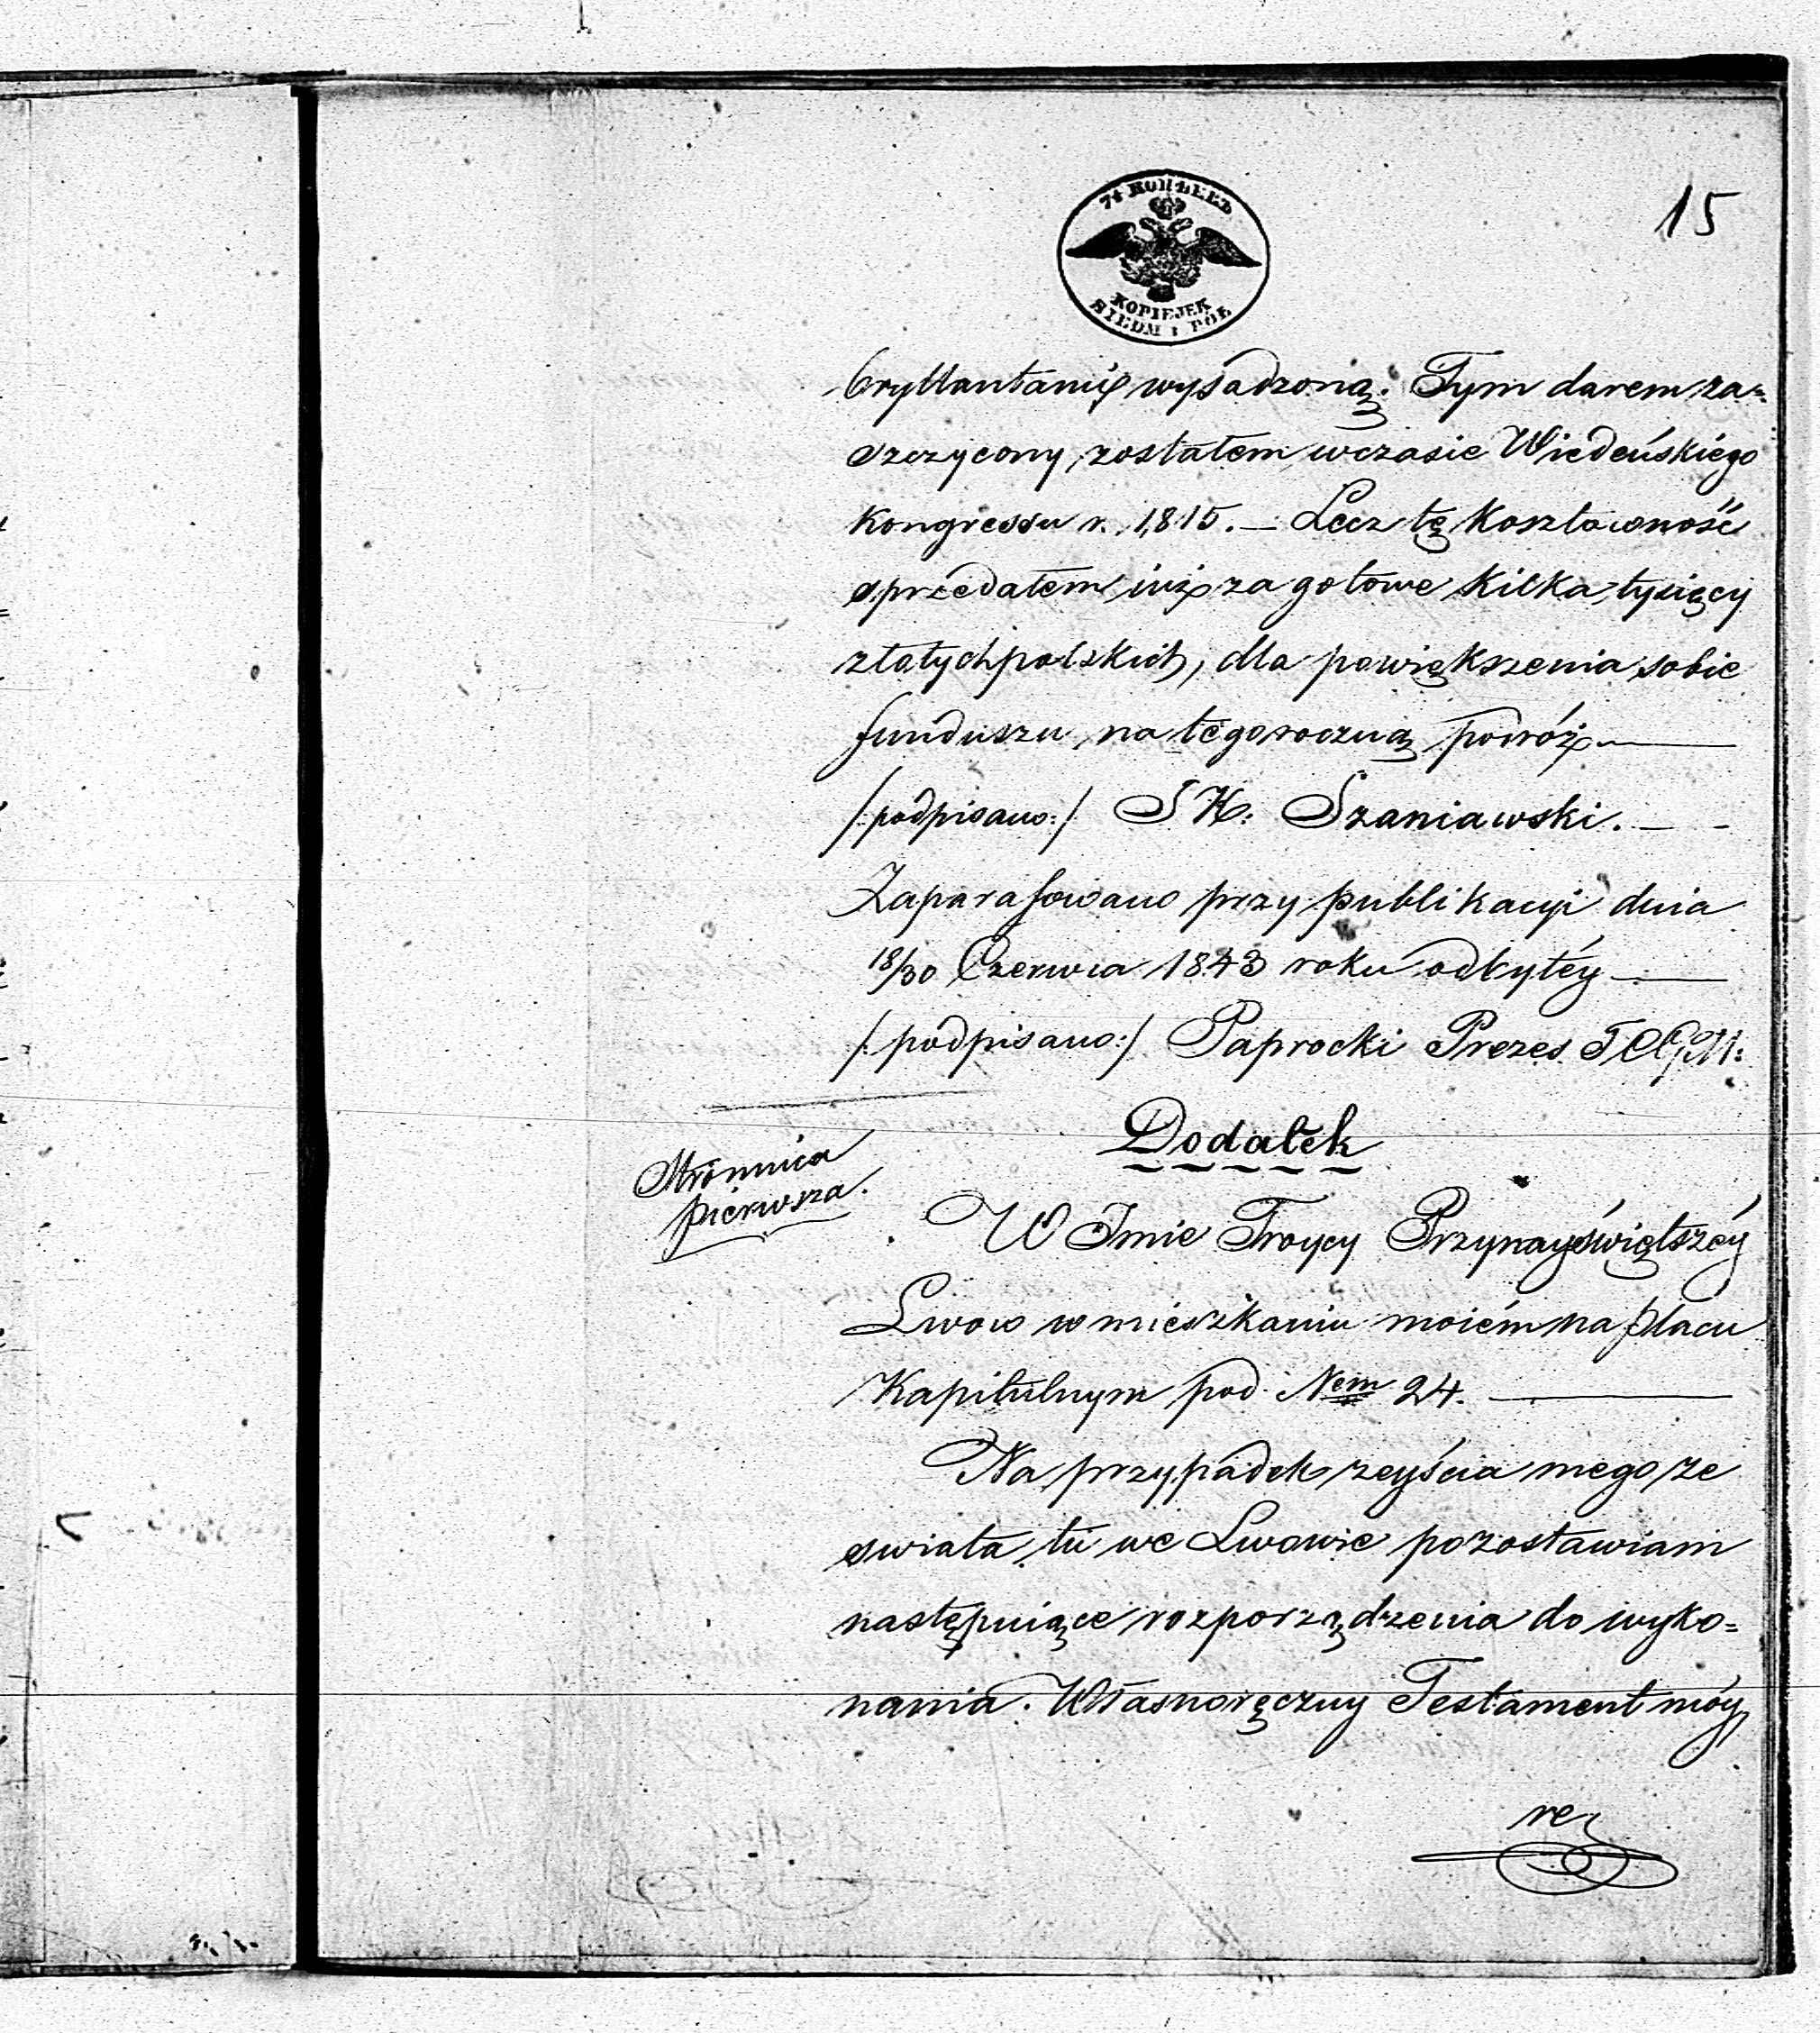 7½ КОПѢЕКЪ
KOPIEJEK
SIEDM i PÓŁ
15
bryllantamiż wysadzoną. Tym darem za=
szczycony zostałem wczasie Wiedeńskiégo
Kongressu r. 1815. — Lecz tę kosztowność
sprzedałem iuż za gotowe kilka tysięcy
złotych polskich, dla powiększenia sobie
funduszu na tegoroczną podróż. —
/:podpisano:/ J K: Szaniawski. — —
Zaparafowano przy publikacyi dnia
18/30 Czerwca 1843 roku odbytéy —
/:podpisano:/ Paprocki Prezes T C G M:
Dodatek
Stronnica
pierwsza.
W Imie Troycy Przynayświętszéy
Lwow w mieszkaniu moiém na placu
Kapitulnym pod Nem 24. —
Na przypadek zeyścia mego ze
swiata tu we Lwowie pozostawiam
następuiące rozporządzenia do wyko=
nania. Własnoręczny Testament móy